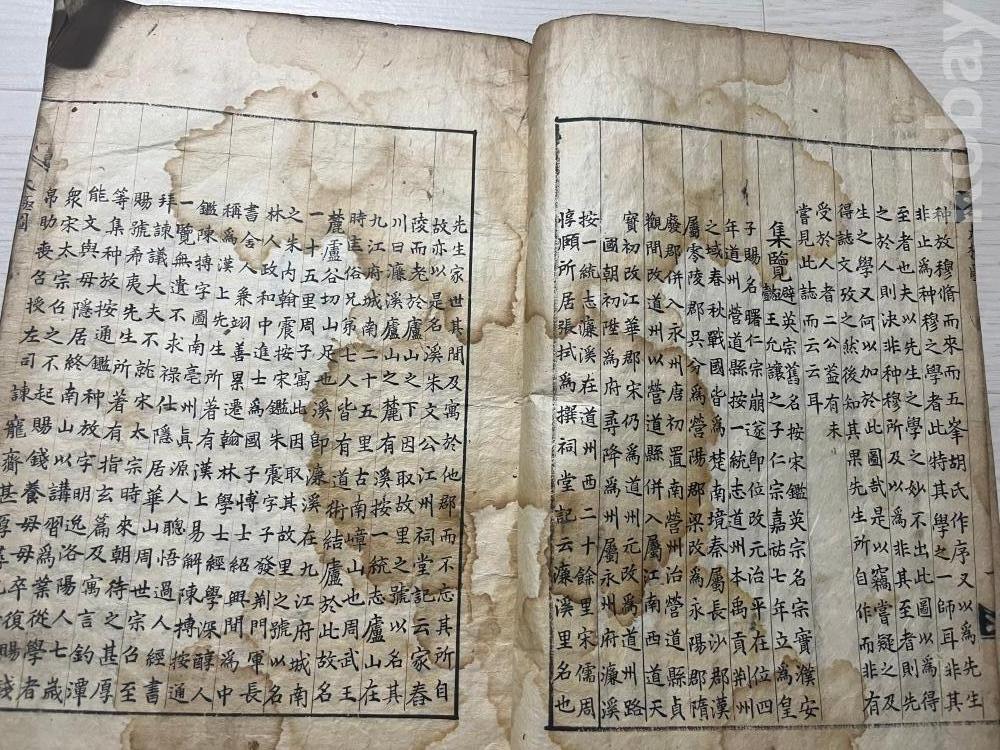 种放穆脩而來而五峯胡氏作序又以為先生
非止為种穆之學者此特其學之一師耳非其
至者也夫以先生之學之妙不出此圖以為得
之於人則决非种穆所及以為非其至者則先
生之學又何以加於此圖㢤是以竊嘗疑之及
得誌文攷之然後知其果先生所自作而非有
受於人者二公盖有未
嘗見此誌而云云耳
集覽 避英宗舊名按宋鑑英宗名宗實濮安
懿王允讓之子仁宗嘉祐七年立為皇
子賜名曙仁宗崩遂即位改元治平在位四
年道州營道縣按一統志道州本禹貢荆州
之域春秋戰國皆為楚南境秦屬長沙郡漢
屬零陵郡吳分為營陽郡梁改為永陽郡隋
廢郡併入永州唐初置南營州治營道縣貞
觀間改道州以營道縣併入屬江南西道天
寶初改江華郡宋為道州元改為道州路
國朝初陞為府尋降為州屬永州府濂溪
按一統志濂溪在道州西二十餘里宋儒周
惇頤所居張拭為撰祠堂記云濂溪里名也
先生家世其間及寓於他郡而不忘其所自
故亦以是名溪朱文公江州祠堂記云家舂
陵而老於廬山之下因取故里之號以名其
川曰濂溪廬山之麓有溪按一統志廬山在
九江府城南二十五里古南嶂也周武王
時匡俗兄弟七人皆有道術結廬於此故名
麓盧谷切山足也溪即濂溪在九江府城南
一十五里周子寓此因取故里之號以名
之朱内翰震按宋鑑朱震字子發荆門軍長
林人政和中進士為國子博士紹興間為中
書舍人兼翊善累遷翰林學士經學深醇人
稱為漢上先生所著有漢上易解陳摶按通
鑑陳摶字圖南亳州眞源人聰悟過人經書
一覽無遺不求禄仕隱居華山周世宗召至
拜諫議大夫不就宋太宗時來朝待之甚厚
賜號希夷先生所著有指玄篇及寓言釣潭
等集种放按通鑑种放字明逸洛陽人七歲
能文與母隱居終南山以講習為業從學者
衆宋太宗召之不起賜錢養母母卒復賜錢
帛助喪召授左司諫
kobay